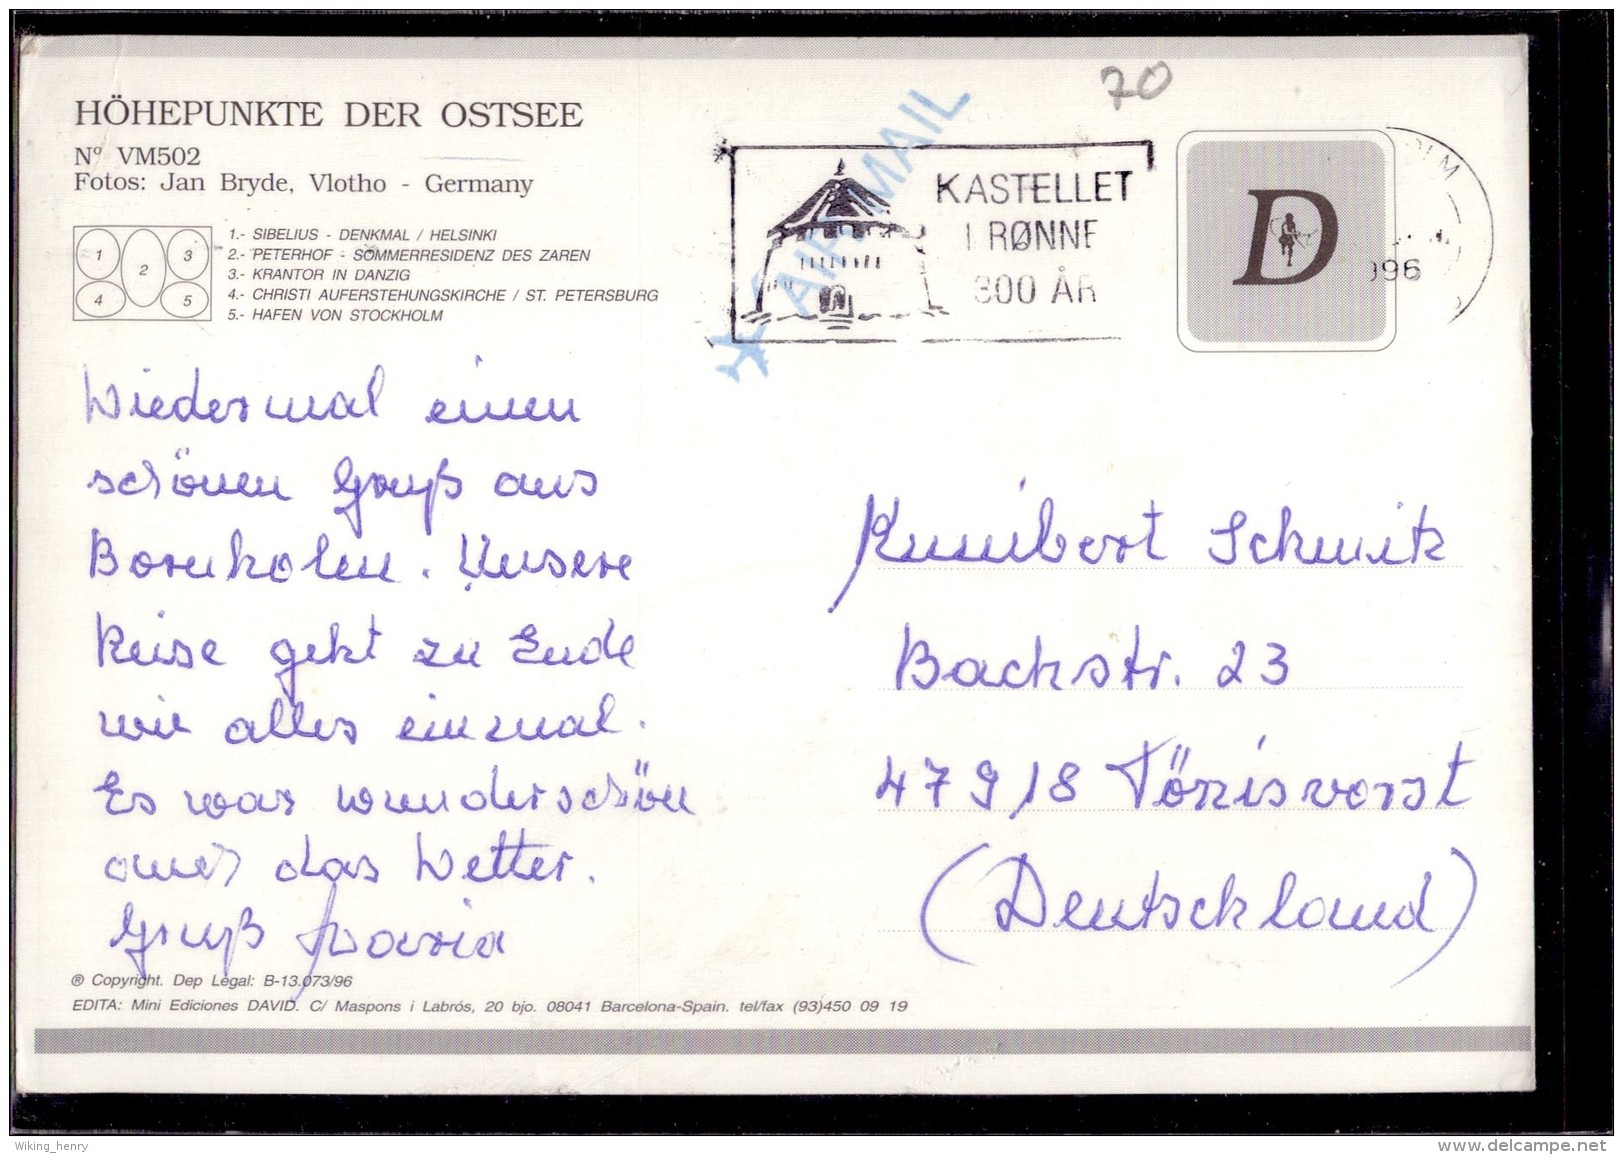 HÖHEPUNKTE DER OSTSEE
Nº VM502
Fotos: Jan Bryde, Vlotho - Germany
1 2 3 4 5
1.- SIBELIUS - DENKMAL / HELSINKI
2.- PETERHOF - SOMMERRESIDENZ DES ZAREN
3.- KRANTOR IN DANZIG
4.- CHRISTI AUFERSTEHUNGSKIRCHE / ST. PETERSBURG
5.- HAFEN VON STOCKHOLM
AIR MAIL
70
KASTELLET
I RØNNE
300 ÅR
D
OLM
996
Wiedermal einen
schönen Gruß aus
Bornholm. Unsere
Reise geht zu Ende
wie alles einmal.
Es war wunderschön
auch das Wetter.
Gruß Maria
Kunibert Schmitz
Bachstr. 23
47918 Tönisvorst
(Deutschland)
® Copyright. Dep Legal: B-13.073/96
EDITA: Mini Ediciones DAVID. C/ Maspons i Labrós, 20 bjo. 08041 Barcelona-Spain. tel/fax (93)450 09 19
Wiking_henry
www.delcampe.net